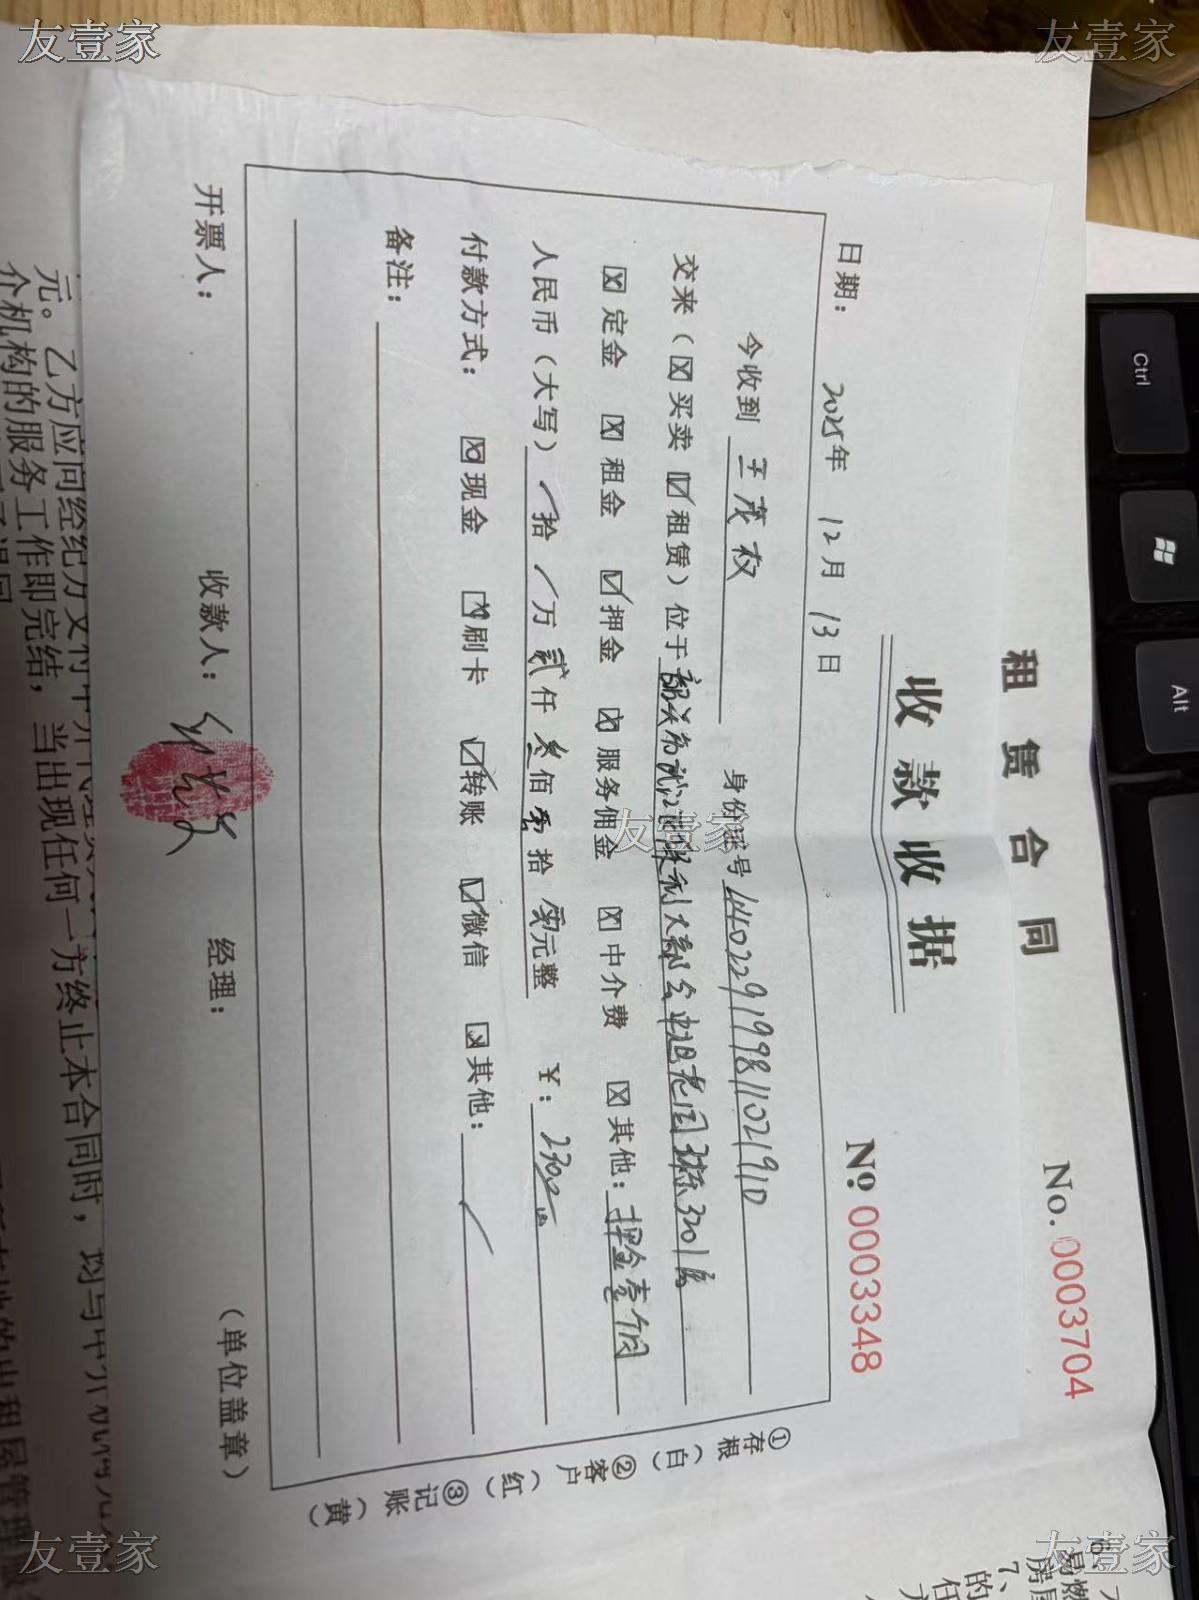 租赁合同 No.0003704
收款收据 № 0003348
日期: 2025年 12月 13日
今收到 王茂枚 身份证号 440229199811021910
交来(☒买卖 ☑租赁)位于韶关市武江 320 房
☒定金 ☒租金 ☑押金 ☒服务佣金 ☒中介费 ☒其他: 押金壹个月
人民币(大写) / 拾 / 万 贰 仟 叁 佰 零 拾 零 元整 ¥: 2300
付款方式: ☒现金 ☒刷卡 ☑转账 ☑微信 ☒其他: /
备注:
开票人: 收款人: 经理: (单位盖章)
①存根(白) ②客户(红) ③记账(黄)
元。乙方应向经纪方支付中介代理
介机构的服务工作即完结,当出现任何一方终止本合同时,均与中介机构无
的出租屋管理
易燃
房屋
7、
的
任
友壹家
友壹家
友壹家
友壹家
友壹家